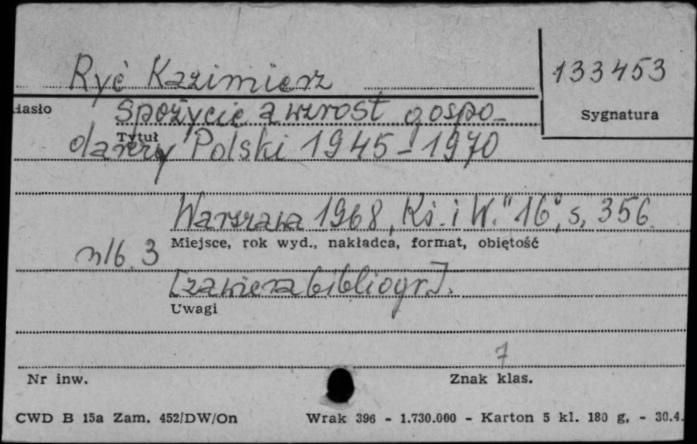 Ryć Kazimierz
133453
Hasło
Sygnatura
Spożycie a wzrost gospo-
Tytuł
darczy Polski 1945-1970
Warszawa 1968, Ks. i W. "16", s. 356.
Miejsce, rok wyd., nakładca, format, objętość
[zawiera bibliogr].
Uwagi
7
Nr inw.
Znak klas.
CWD B 15a Zam. 452/DW/On Wrak 396 - 1.730.000 - Karton 5 kl. 180 g, - 30.4.